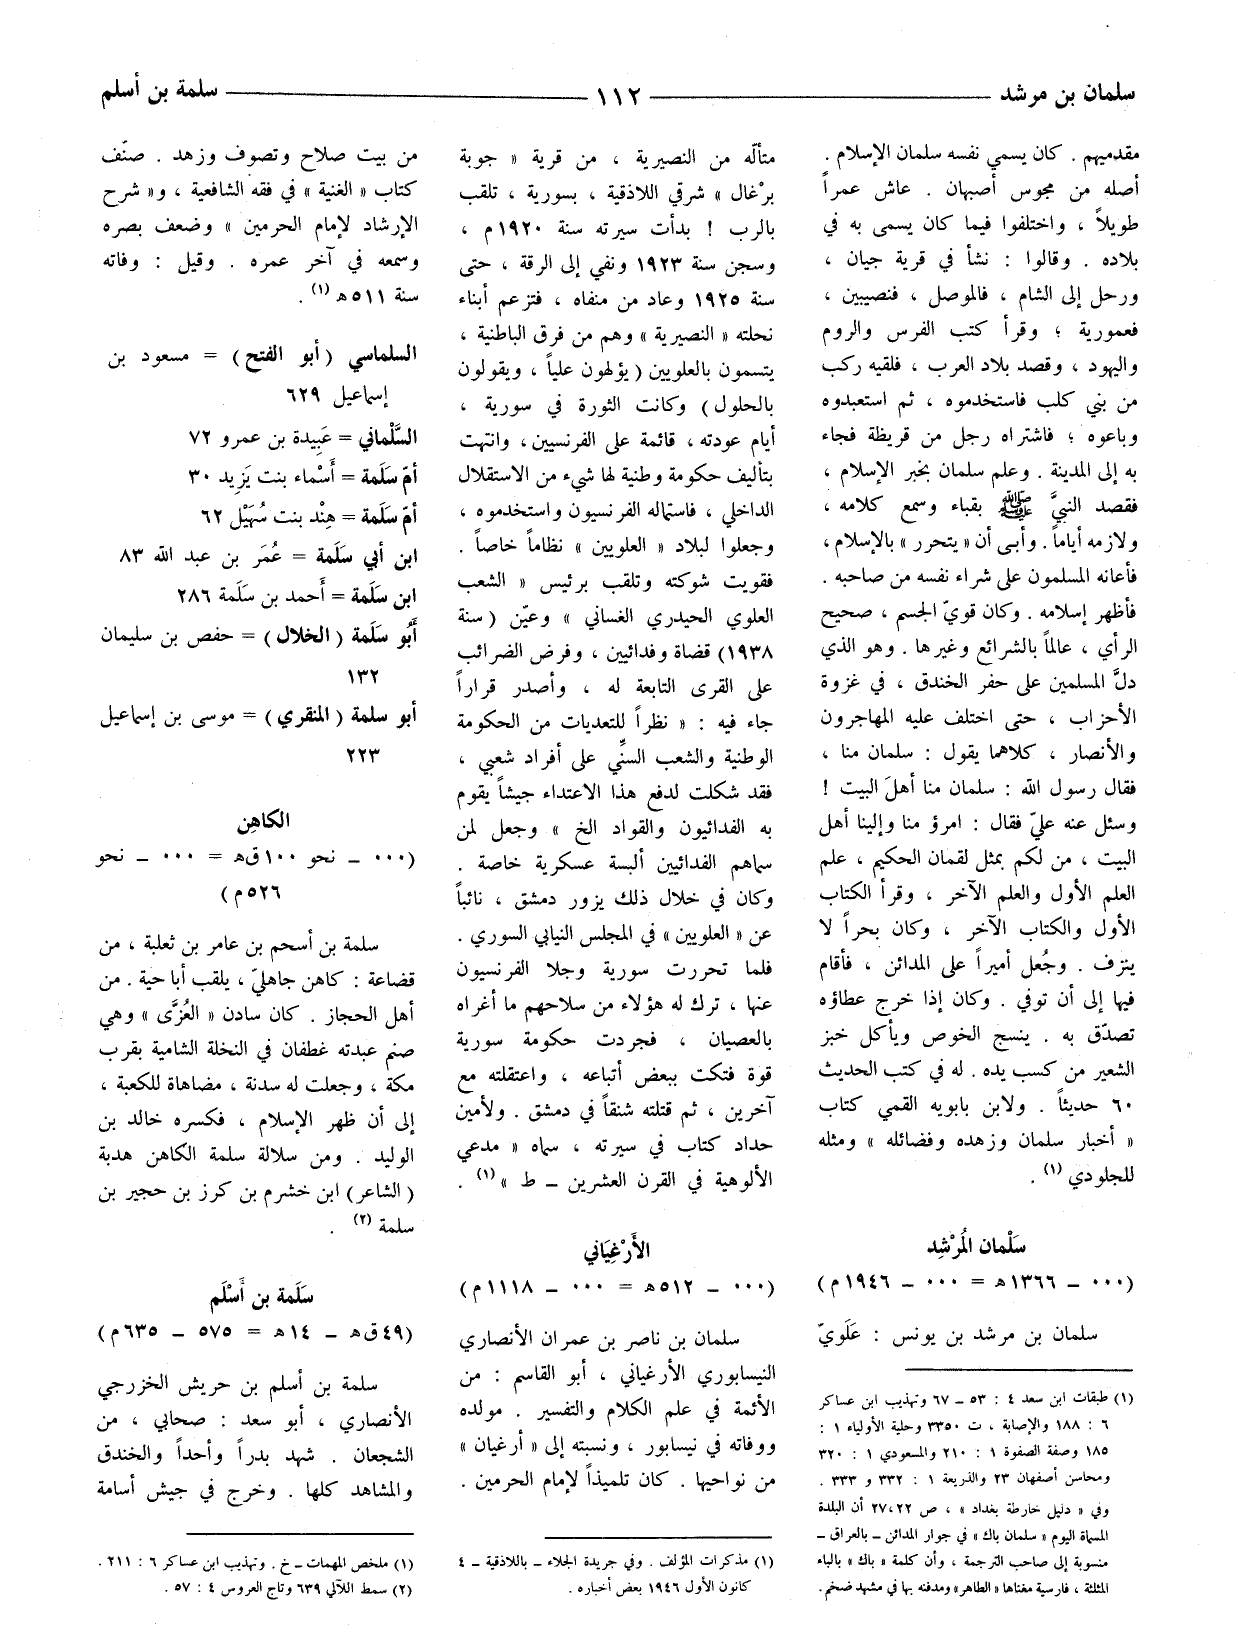 سلمان بن مرشد ــــــ ١١٢ ــــــ سلمة بن أسلم
مقدميهم . كان يسمي نفسه سلمان الإسلام .
أصله من مجوس أصبهان . عاش عمراً
طويلاً ، واختلفوا فيما كان يسمى به في
بلاده . وقالوا : نشأ في قرية جيان ،
ورحل إلى الشام ، فالموصل ، فنصيبين ،
فعمورية ؛ وقرأ كتب الفرس والروم
واليهود ، وقصد بلاد العرب ، فلقيه ركب
من بني كلب فاستخدموه ، ثم استعبدوه
وباعوه ؛ فاشتراه رجل من قريظة فجاء
به إلى المدينة . وعلم سلمان بخبر الإسلام ،
فقصد النبيَّ ﷺ بقباء وسمع كلامه ،
ولازمه أياماً . وأبى أن « يتحرر » بالإسلام ،
فأعانه المسلمون على شراء نفسه من صاحبه .
فأظهر إسلامه . وكان قويّ الجسم ، صحيح
الرأي ، عالماً بالشرائع وغيرها . وهو الذي
دلَّ المسلمين على حفر الخندق ، في غزوة
الأحزاب ، حتى اختلف عليه المهاجرون
والأنصار ، كلاهما يقول : سلمان منا ،
فقال رسول الله : سلمان منا أهلَ البيت !
وسئل عنه عليّ فقال : امرؤ منا وإلينا أهل
البيت ، من لكم بمثل لقمان الحكيم ، علم
العلم الأول والعلم الآخر ، وقرأ الكتاب
الأول والكتاب الآخر ، وكان بحراً لا
ينزف . وجُعل أميراً على المدائن ، فأقام
فيها إلى أن توفي . وكان إذا خرج عطاؤه
تصدّق به . ينسج الخوص ويأكل خبز
الشعير من كسب يده . له في كتب الحديث
٦٠ حديثاً . ولابن بابويه القمي كتاب
« أخبار سلمان وزهده وفضائله » ومثله
للجلودي (١) .
سَلْمان المُرْشِد
(٠٠٠ – ١٣٦٦ هـ = ٠٠٠ – ١٩٤٦ م)
سلمان بن مرشد بن يونس : عَلَويّ
(١) طبقات ابن سعد ٤ : ٥٣ – ٦٧ وتهذيب ابن عساكر
٦ : ١٨٨ والإصابة ، ت ٣٣٥٠ وحلية الأولياء ١ :
١٨٥ وصفة الصفوة ١ : ٢١٠ والمسعودي ١ : ٣٢٠
ومحاسن أصفهان ٢٣ والذريعة ١ : ٣٣٢ و ٣٣٣ .
وفي « دليل خارطة بغداد » ، ص ٢٢ ،٢٧ أن البلدة
المسماة اليوم « سلمان باك » في جوار المدائن – بالعراق –
منسوبة إلى صاحب الترجمة ، وأن كلمة « باك » بالباء
المثلثة ، فارسية معناها « الطاهر » ومدفنه بها في مشهد ضخم .
متألّه من النصيرية ، من قرية « جوبة
برْغال » شرقي اللاذقية ، بسورية ، تلقب
بالرب ! بدأت سيرته سنة ١٩٢٠ م ،
وسجن سنة ١٩٢٣ ونفي إلى الرقة ، حتى
سنة ١٩٢٥ وعاد من منفاه ، فتزعم أبناء
نحلته « النصيرية » وهم من فرق الباطنية ،
يتسمون بالعلويين ( يؤلهون علياً ، ويقولون
بالحلول ) وكانت الثورة في سورية ،
أيام عودته ، قائمة على الفرنسيين ، وانتهت
بتأليف حكومة وطنية لها شيء من الاستقلال
الداخلي ، فاستماله الفرنسيون واستخدموه ،
وجعلوا لبلاد « العلويين » نظاماً خاصاً .
فقويت شوكته وتلقب برئيس « الشعب
العلوي الحيدري الغساني » وعيّن ( سنة
١٩٣٨ ) قضاة وفدائيين ، وفرض الضرائب
على القرى التابعة له ، وأصدر قراراً
جاء فيه : « نظراً للتعديات من الحكومة
الوطنية والشعب السنِّي على أفراد شعبي ،
فقد شكلت لدفع هذا الاعتداء جيشاً يقوم
به الفدائيون والقواد الخ » وجعل لمن
سماهم الفدائيين ألبسة عسكرية خاصة .
وكان في خلال ذلك يزور دمشق ، نائباً
عن « العلويين » في المجلس النيابي السوري .
فلما تحررت سورية وجلا الفرنسيون
عنها ، ترك له هؤلاء من سلاحهم ما أغراه
بالعصيان ، فجردت حكومة سورية
قوة فتكت ببعض أتباعه ، واعتقلته مع
آخرين ، ثم قتلته شنقاً في دمشق . ولأمين
حداد كتاب في سيرته ، سماه « مدعي
الألوهية في القرن العشرين – ط » (١) .
الأَرْغِيَاني
(٠٠٠ – ٥١٢ هـ = ٠٠٠ – ١١١٨ م)
سلمان بن ناصر بن عمران الأنصاري
النيسابوري الأرغياني ، أبو القاسم : من
الأئمة في علم الكلام والتفسير . مولده
ووفاته في نيسابور ، ونسبته إلى « أرغيان »
من نواحيها . كان تلميذاً لإمام الحرمين .
(١) مذكرات المؤلف . وفي جريدة الجلاء – باللاذقية – ٤
كانون الأول ١٩٤٦ بعض أخباره .
من بيت صلاح وتصوف وزهد . صنّف
كتاب « الغنية » في فقه الشافعية ، و« شرح
الإرشاد لإمام الحرمين » وضعف بصره
وسمعه في آخر عمره . وقيل : وفاته
سنة ٥١١ هـ (١) .
السلماسي ( أبو الفتح ) = مسعود بن
إسماعيل ٦٢٩
السَّلْماني = عَبِيدة بن عمرو ٧٢
أمّ سَلَمة = أَسْماء بنت يَزِيد ٣٠
أمّ سَلَمة = هِنْد بنت سُهَيْل ٦٢
ابن أبي سَلَمة = عُمَر بن عبد الله ٨٣
ابن سَلَمة = أَحمد بن سَلَمة ٢٨٦
أَبُو سَلَمة ( الخلال ) = حفص بن سليمان
١٣٢
أبو سلمة ( المنقري ) = موسى بن إسماعيل
٢٢٣
الكاهِن
(٠٠٠ – نحو ١٠٠ ق هـ = ٠٠٠ – نحو
٥٢٦ م)
سلمة بن أسحم بن عامر بن ثعلبة ، من
قضاعة : كاهن جاهليّ ، يلقب أبا حية . من
أهل الحجاز . كان سادن « العُزَّى » وهي
صنم عبدته غطفان في النخلة الشامية بقرب
مكة ، وجعلت له سدنة ، مضاهاة للكعبة ،
إلى أن ظهر الإسلام ، فكسره خالد بن
الوليد . ومن سلالة سلمة الكاهن هدبة
( الشاعر ) ابن خشرم بن كرز بن حجير بن
سلمة (٢) .
سَلَمة بن أَسْلَم
(٤٩ ق هـ – ١٤ هـ = ٥٧٥ – ٦٣٥ م)
سلمة بن أسلم بن حريش الخزرجي
الأنصاري ، أبو سعد : صحابي ، من
الشجعان . شهد بدراً وأحداً والخندق
والمشاهد كلها . وخرج في جيش أسامة
(١) ملخص المهمات – خ . وتهذيب ابن عساكر ٦ : ٢١١ .
(٢) سمط اللآلي ٦٣٩ وتاج العروس ٤ : ٥٧ .